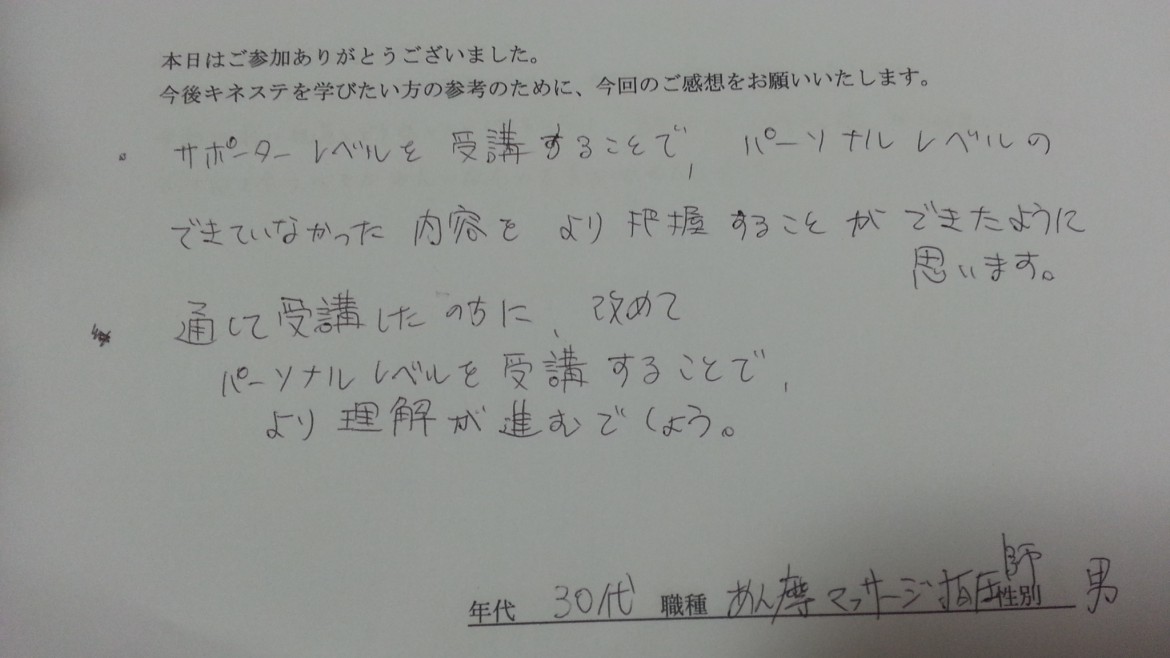 本日はご参加ありがとうございました。
今後キネステを学びたい方の参考のために、今回のご感想をお願いいたします。
。サポーターレベルを受講することで、パーソナルレベルの
できていなかった内容をより把握することができたように
思います。
通して受講したのちに、改めて
パーソナルレベルを受講することで、
より理解が進むでしょう。
年代 30代 職種 あん摩マッサージ指圧師 性別 男